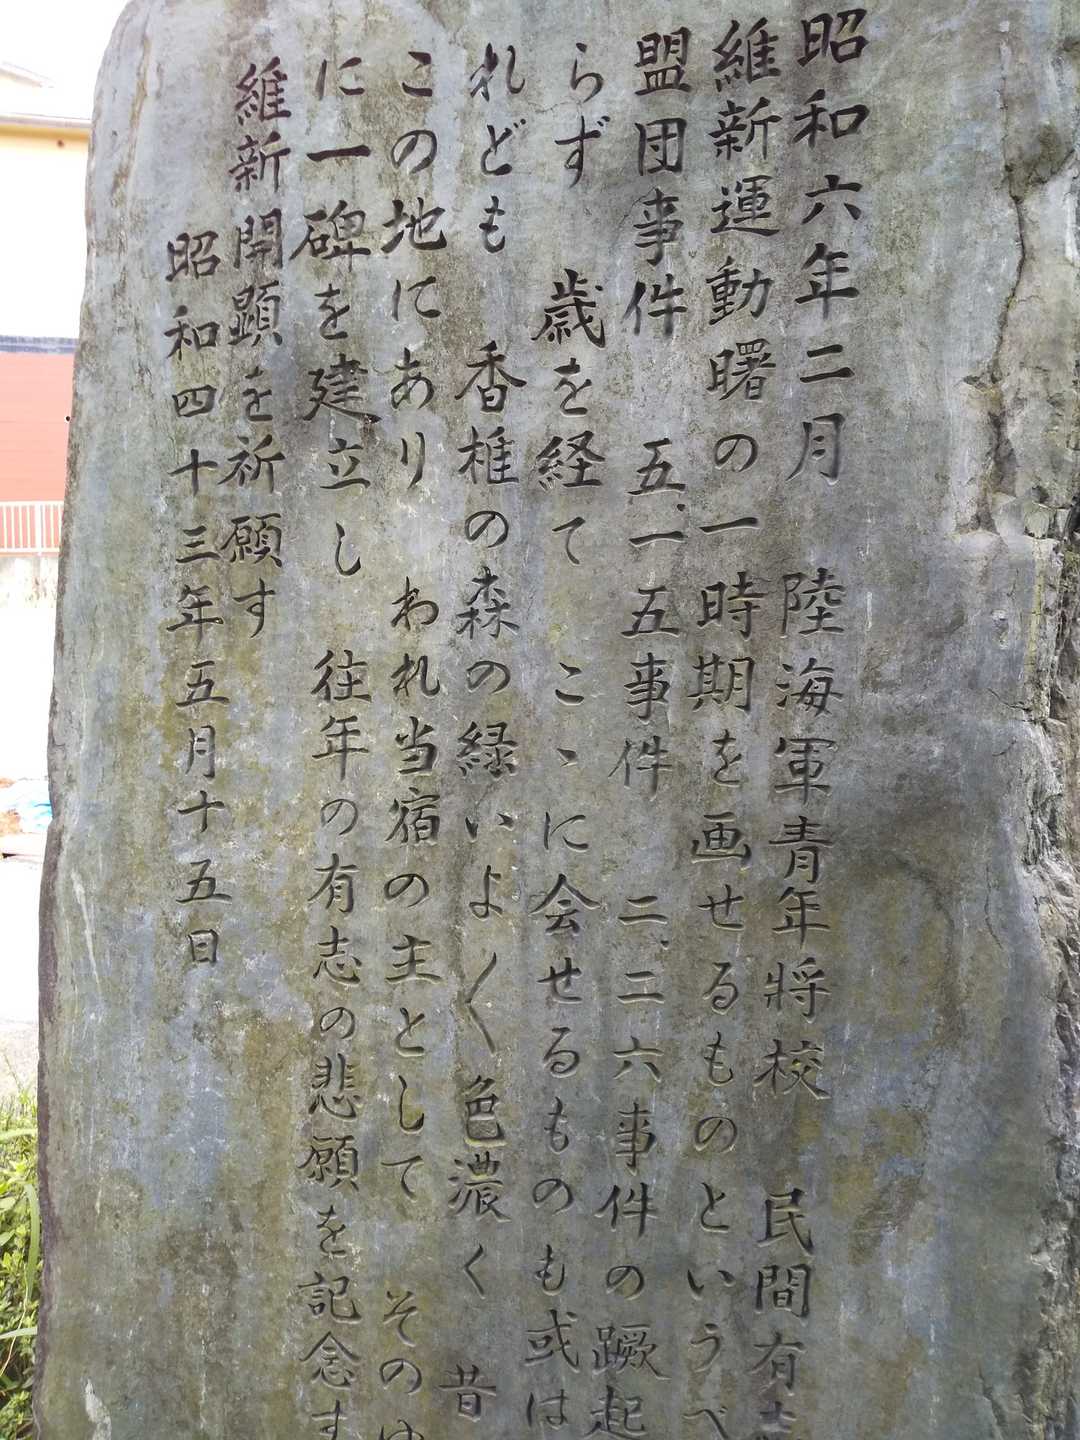 昭和六年二月　陸海軍青年将校　民間有志
維新運動曙の一時期を画せるものというべ
盟団事件　五、一五事件　二、二六事件の蹶起
らず　歳を経て　こゝに会せるものも或は
れども　香椎の森の緑いよ〱色濃く　昔
この地にあり　われ当宿の主として　そのゆ
に一碑を建立し　往年の有志の悲願を記念す
維新開顕を祈願す
昭和四十三年五月十五日